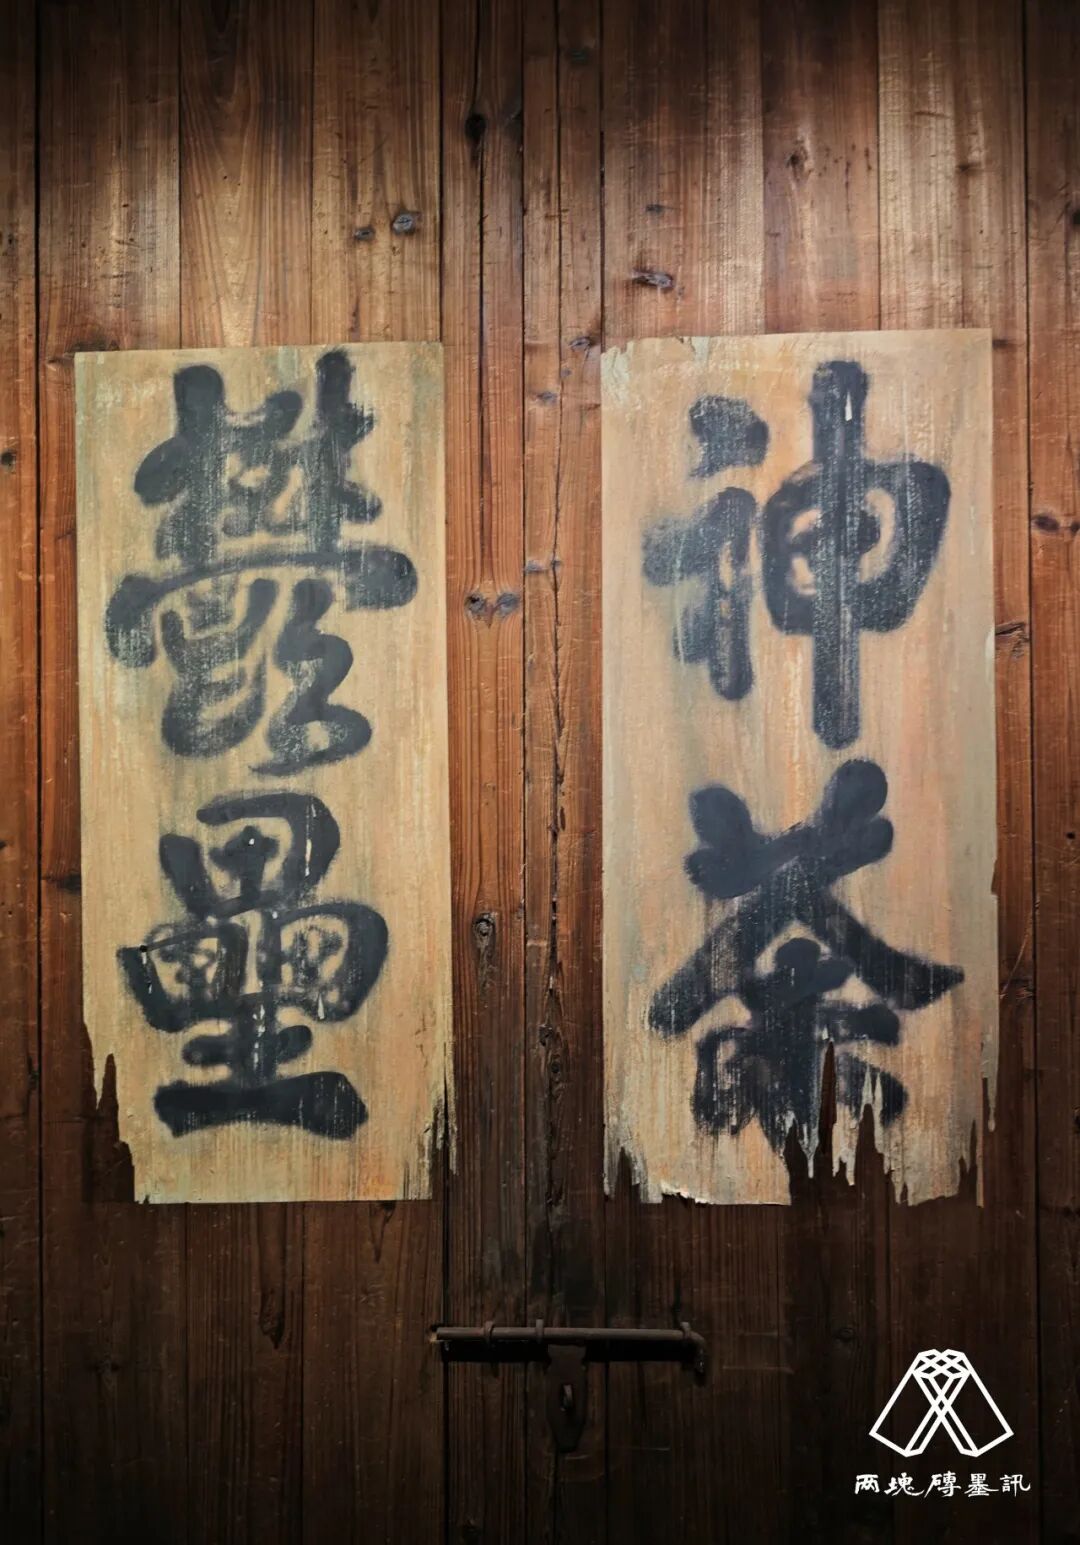 神荼
鬱壘
两塊磚墨訊